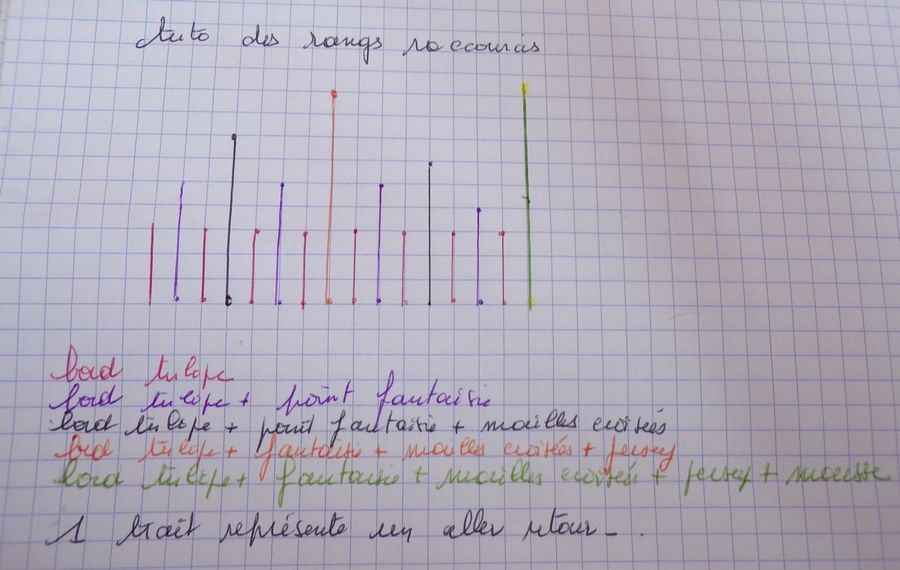 tuto des rangs raccourcis
bord tulipe
bord tulipe + point fantaisie
bord tulipe + point fantaisie + mailles croisées
bord tulipe + fantaisie + mailles croisées + jersey
bord tulipe + fantaisie + mailles croisées + jersey + mousse
1 trait représente un aller retour.